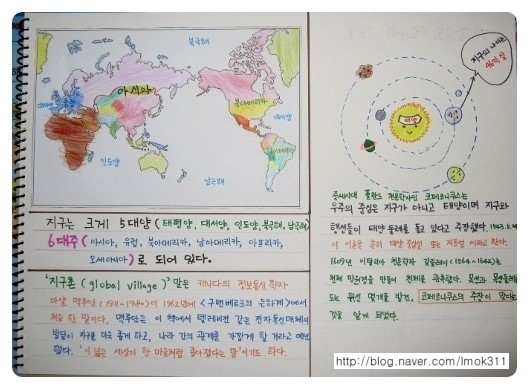 북극해
아시아
유럽
대서양
북아메리카
아프리카
인도양
남극해
지구는 크게 5대양 (태평양, 대서양, 인도양, 북극해, 남극해)
6대주 (아시아, 유럽, 북아메리카, 남아메리카, 아프리카,
오세아니아)로 되어 있다.
'지구촌 (global village)' 말은 캐나다의 정보통신학자
마샬 맥루한 (1911~1980)이 1962년에 <구텐베르크 은하계>에서
처음 한 말이다. 맥루한은 이 책에서 텔레비전 같은 전자통신매체의
발달이 지구를 더욱 좁게 하고, 나라 간의 관계를 가깝게 할 거라고 예언
했다. '이 넓은 세상이 한 마을처럼 좁아졌다는 말'이기도 하다.
지구의 나이는
46억 살
태양
중세시대 폴란드 천문학자인 코페르니쿠스는
우주의 중심은 지구가 아니고 태양이며 지구와
행성들이 태양 둘레를 돌고 있다고 주장했다.
이 이론을 흔히 태양 중심설 또는 지동설 이라고 한다.
1609년 이탈리아 천문학자 갈릴레이 (1564~1642)는
천체 망원경을 만들어 천체를 관측했다. 목성과 목성둘레를
도는 위성 몇개를 발견, 코페르니쿠스의 주장이 맞다는
것을 알게 되었다.
http://blog.naver.com/lmok311